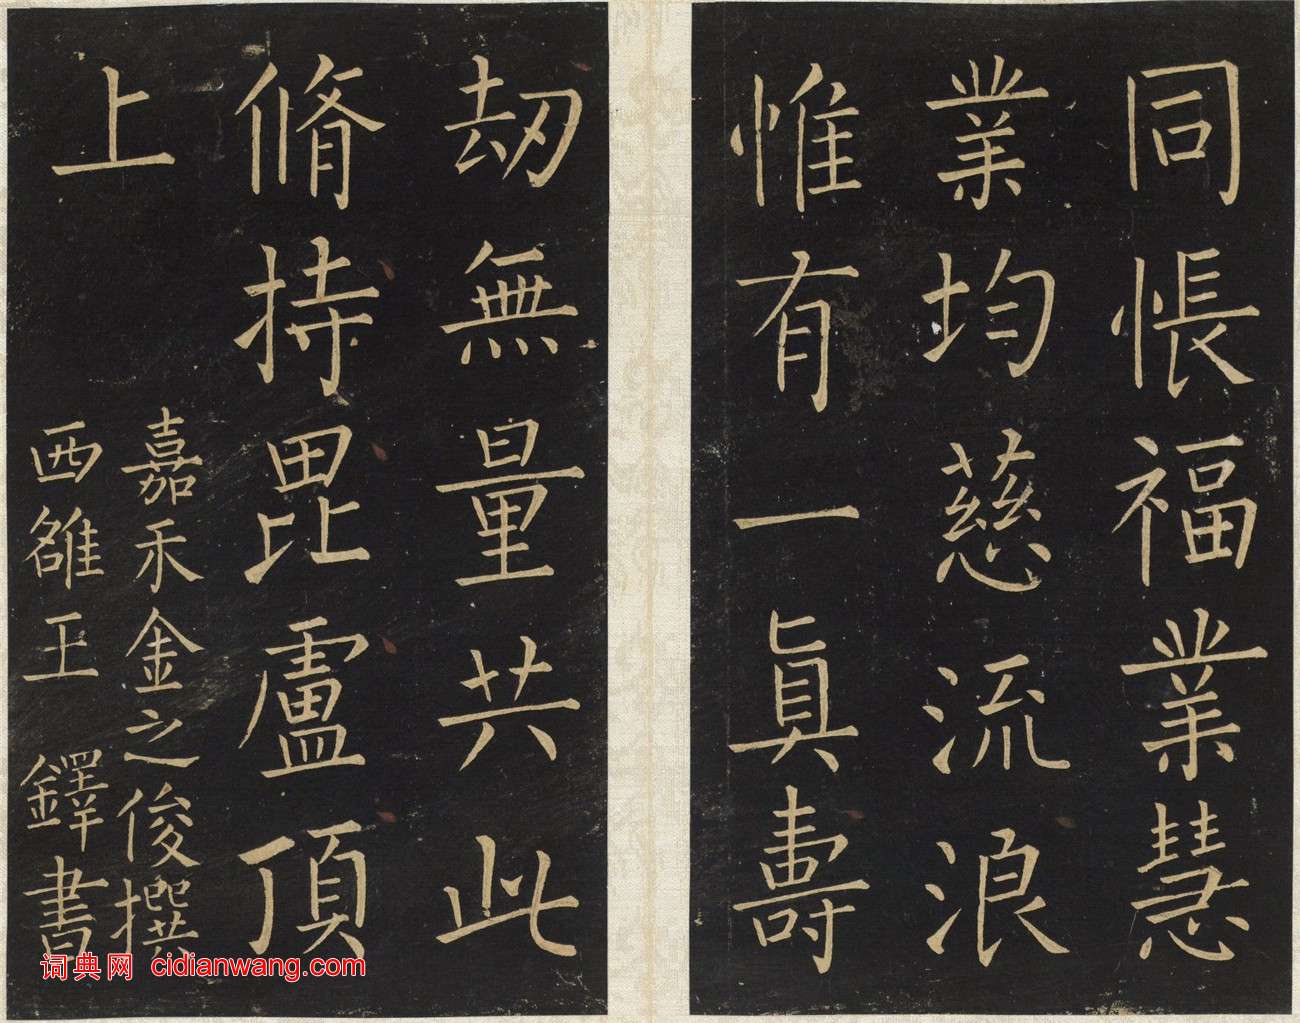 同悵福業慧
業均慈流浪
惟有一眞壽
劫無量共此
脩持毘盧頂
上
嘉禾金之俊撰
西雒王鐸書
词典网 cidianwang.com